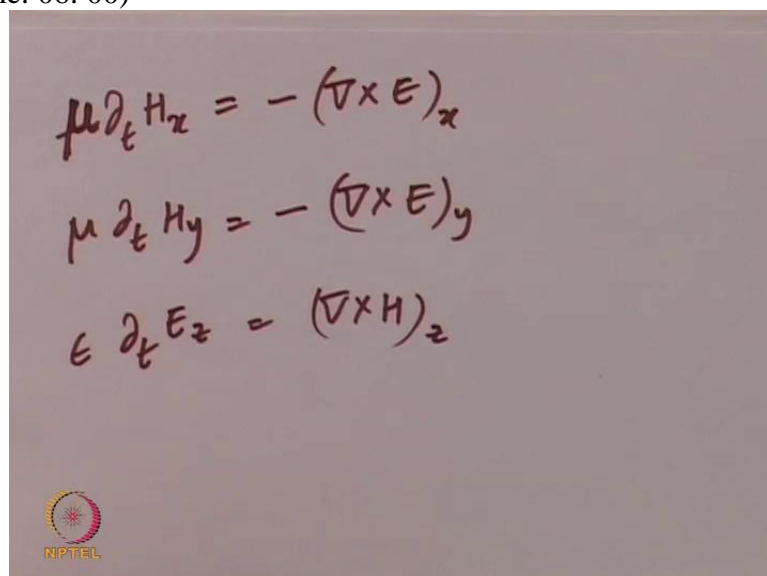 μ∂ₜHₓ = - (∇×E)ₓ
μ ∂ₜ Hy = - (∇×E)y
ϵ ∂ₜ E_z = (∇×H)_z
NPTEL